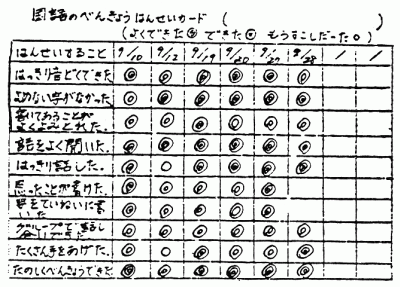 国語のべんきょうはんせいカード ( )
(よくできた◎ できた◎ もうすこしだった○)
はんせいすること 9/10 9/12 9/19 9/20 9/27 9/28 / /
はっきり音どくできた
よめない字がなかった
書いてあることが
よくよみとれた.
話をよく聞いた.
はっきり話した.
思ったことが書けた.
字をていねいに書
いた
グループで話し
合しできた
たくさん手をあげた.
たのしくべんきょうできた